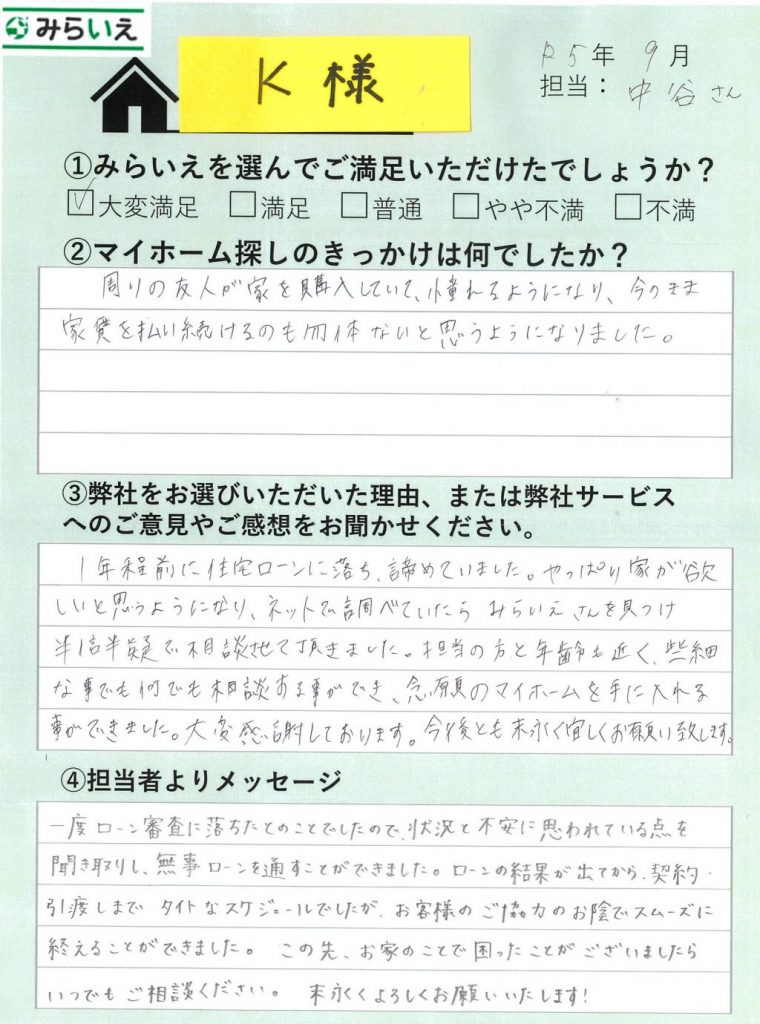 みらいえ
K 様
R5年 9月
担当： 中谷さん
①みらいえを選んでご満足いただけたでしょうか？
☑大変満足 □満足 □普通 □やや不満 □不満
②マイホーム探しのきっかけは何でしたか？
周りの友人が家を購入していて、憧れるようになり、今のまま
家賃を払い続けるのも勿体ないと思うようになりました。
③弊社をお選びいただいた理由、または弊社サービス
へのご意見やご感想をお聞かせください。
1年程前に住宅ローンに落ち、諦めていました。やっぱり家が欲
しいと思うようになり、ネットで調べていたら みらいえさんを見つけ
半信半疑で相談させて頂きました。担当の方と年齢も近く、些細
な事でも何でも相談する事ができ、念願のマイホームを手に入れる
事ができました。大変感謝しております。今後とも末永く宜しくお願い致します。
④担当者よりメッセージ
一度ローン審査に落ちたとのことでしたので、状況と不安に思われている点を
聞き取りし、無事ローンを通すことができました。ローンの結果が出てから、契約・
引渡しまで タイトなスケジュールでしたが、お客様のご協力のお陰でスムーズに
終えることができました。 この先、お家のことで困ったことがございましたら
いつでもご相談ください。 末永くよろしくお願いいたします!